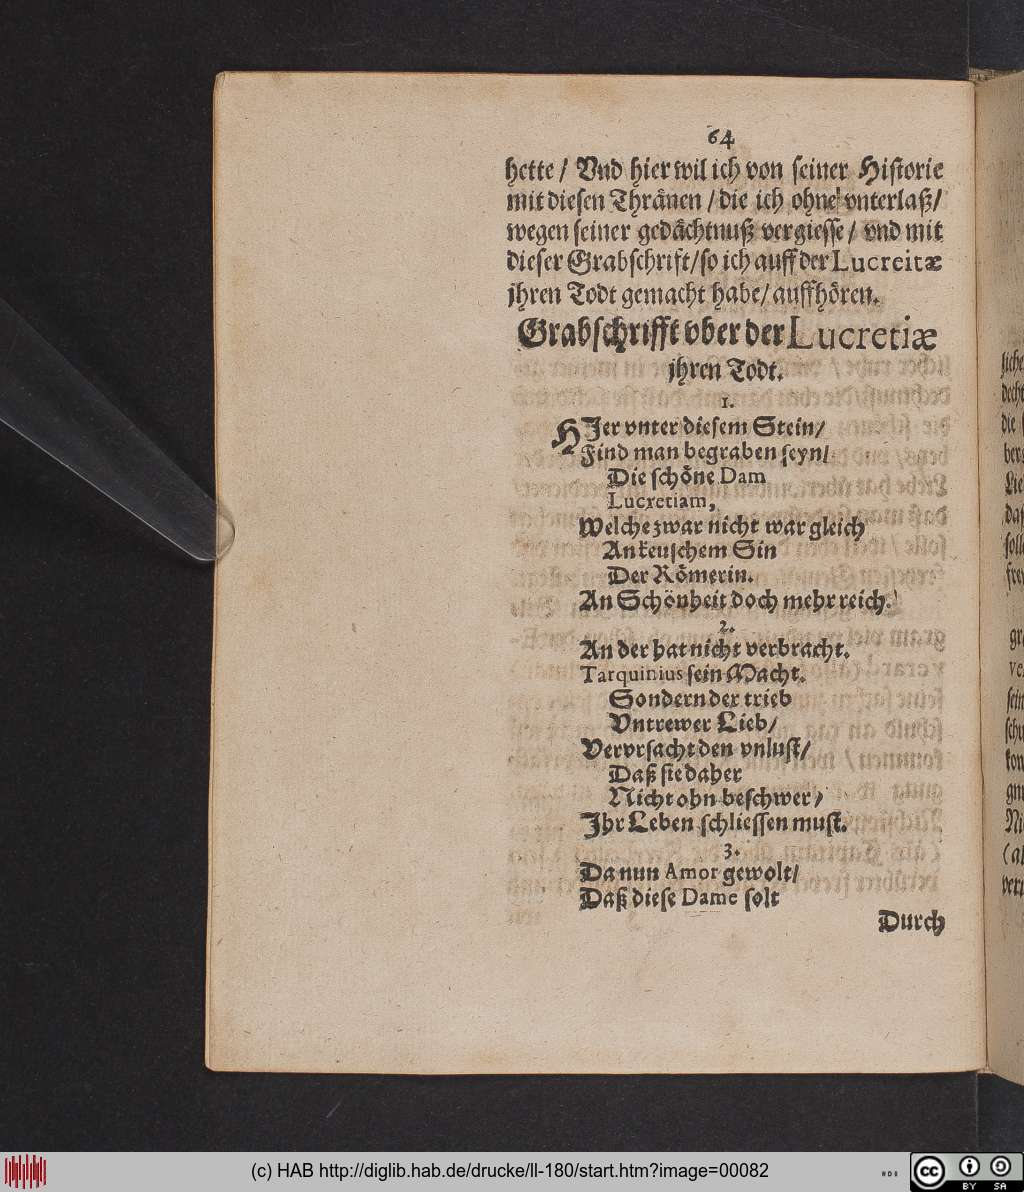 64
hette / Vnd hier wil ich von seiner Historie
mit diesen Thränen / die ich ohne vnterlaß /
wegen seiner gedächtnuß vergiesse / vnd mit
dieser Grabschrift / so ich auff der Lucreitæ
jhren Todt gemacht habe / auffhören.
Grabschrifft vber der Lucretiæ
jhren Todt.
1.
HJer vnter diesem Stein /
Find man begraben seyn /
Die schöne Dam
Lucretiam,
Welche zwar nicht war gleich
An keuschem Sin
Der Römerin.
An Schönheit doch mehr reich.
2.
An der hat nicht verbracht.
Tarquinius sein Macht.
Sondern der trieb
Vntrewer Lieb /
Vervrsacht den vnlust /
Daß sie daher
Nicht ohn beschwer /
Jhr Leben schliessen must.
3.
Da nun Amor gewolt /
Daß diese Dame solt
Durch
(c) HAB http://diglib.hab.de/drucke/ll-180/start.htm?image=00082
cc BY SA